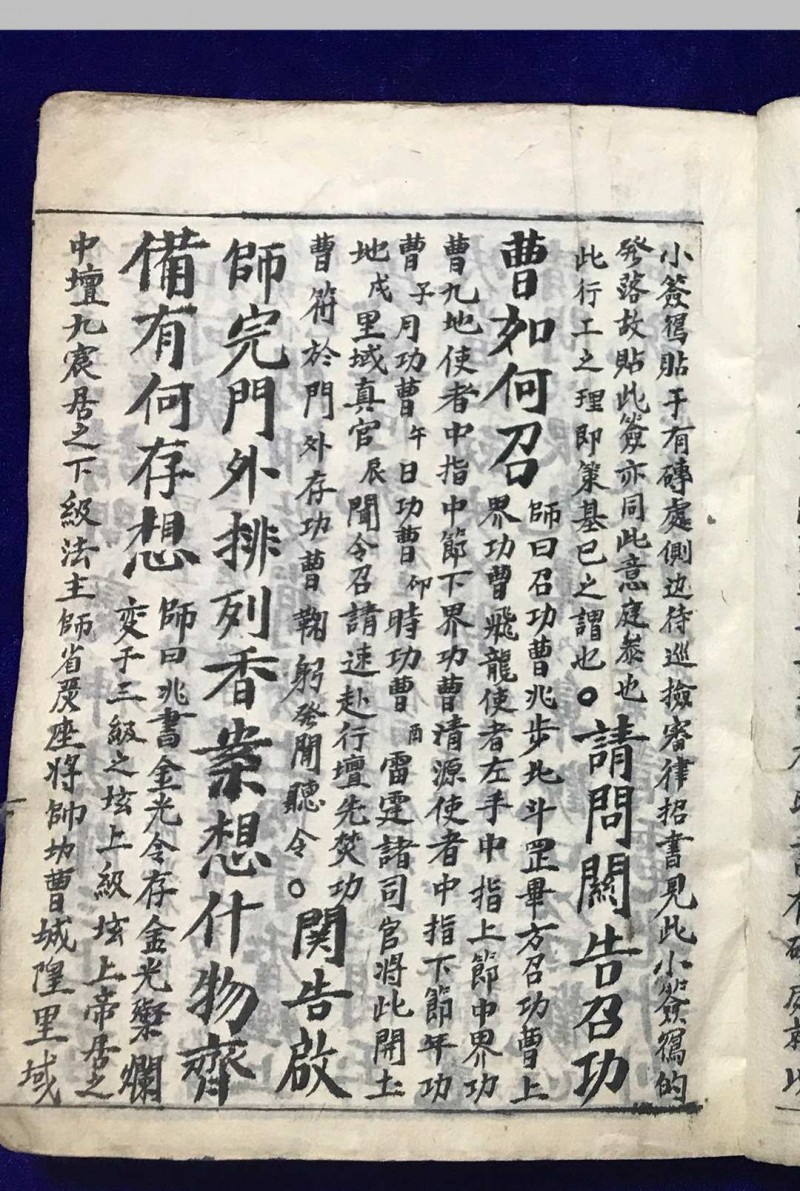 小簽寫貼于有磚處側边待巡撿審律招書見此小簽寫的
發落故貼此簽亦同此意庭叅也
此行工之理即策基已之謂也。請問関告召功
曹如何召師曰召功曹兆步北斗罡畢方召功曹上
界功曹飛龍使者左手中指上節中界功
曹九地使者中指中節下界功曹清源使者中指下節年功
曹子月功曹午日功曹卯時功曹酉雷霆諸司官將此開土
地戌里域真官辰聞令召請速赴行壇先焚功
曹符於門外存功曹鞠躬發聞聽令。関告啟
師完門外排列香案想什物齊
備有何存想師曰兆書金光令存金光爍爛
变于三級之垓上級垓上帝居之
中壇九宸居之下級法主師省展座將帥功曹城隍里域